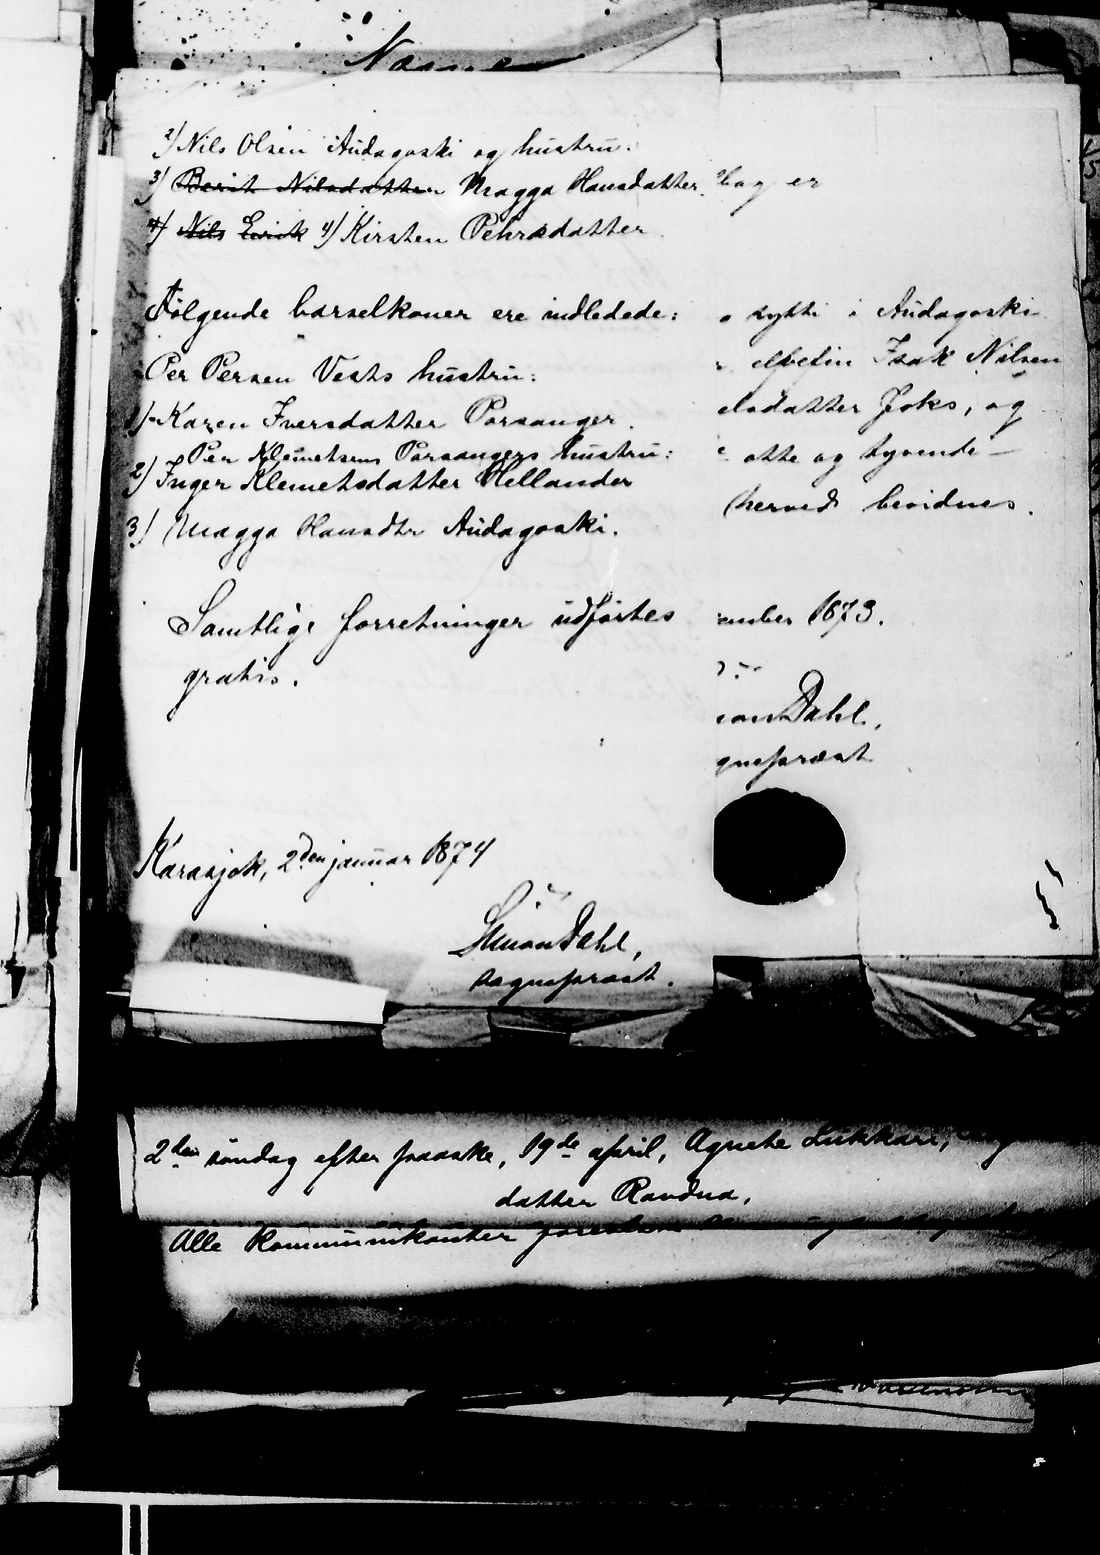 2) Nils Olsen Audagoski og hustru.
3) Berit Nilsdatter Magga Hansdatter.
4) Nils Eirik 4) Kirsten Pehrsdatter
Følgende barselkoner ere indledede:
Per Persen Vests hustru:
1) Karen Iversdatter Porsanger.
Per Klemetsens Porsangers hustru:
2) Inger Klemetsdatter Hellander
3) Magga Hansdtr Audagoski.
Samtlige forretninger udførtes
gratis.
Karasjok, 2den januar 1874
Simon Dahl,
sognepræst.
bag er
i Audagoski
Isak Nilsen
datter Joks, og
otte og tyvende
herved bevidnes.
ember 1873.
Dahl,
gnepræst
2den søndag efter paaske, 19de april, Agnete Lukkari,
datter Ravdna.
Alle kommunikanter